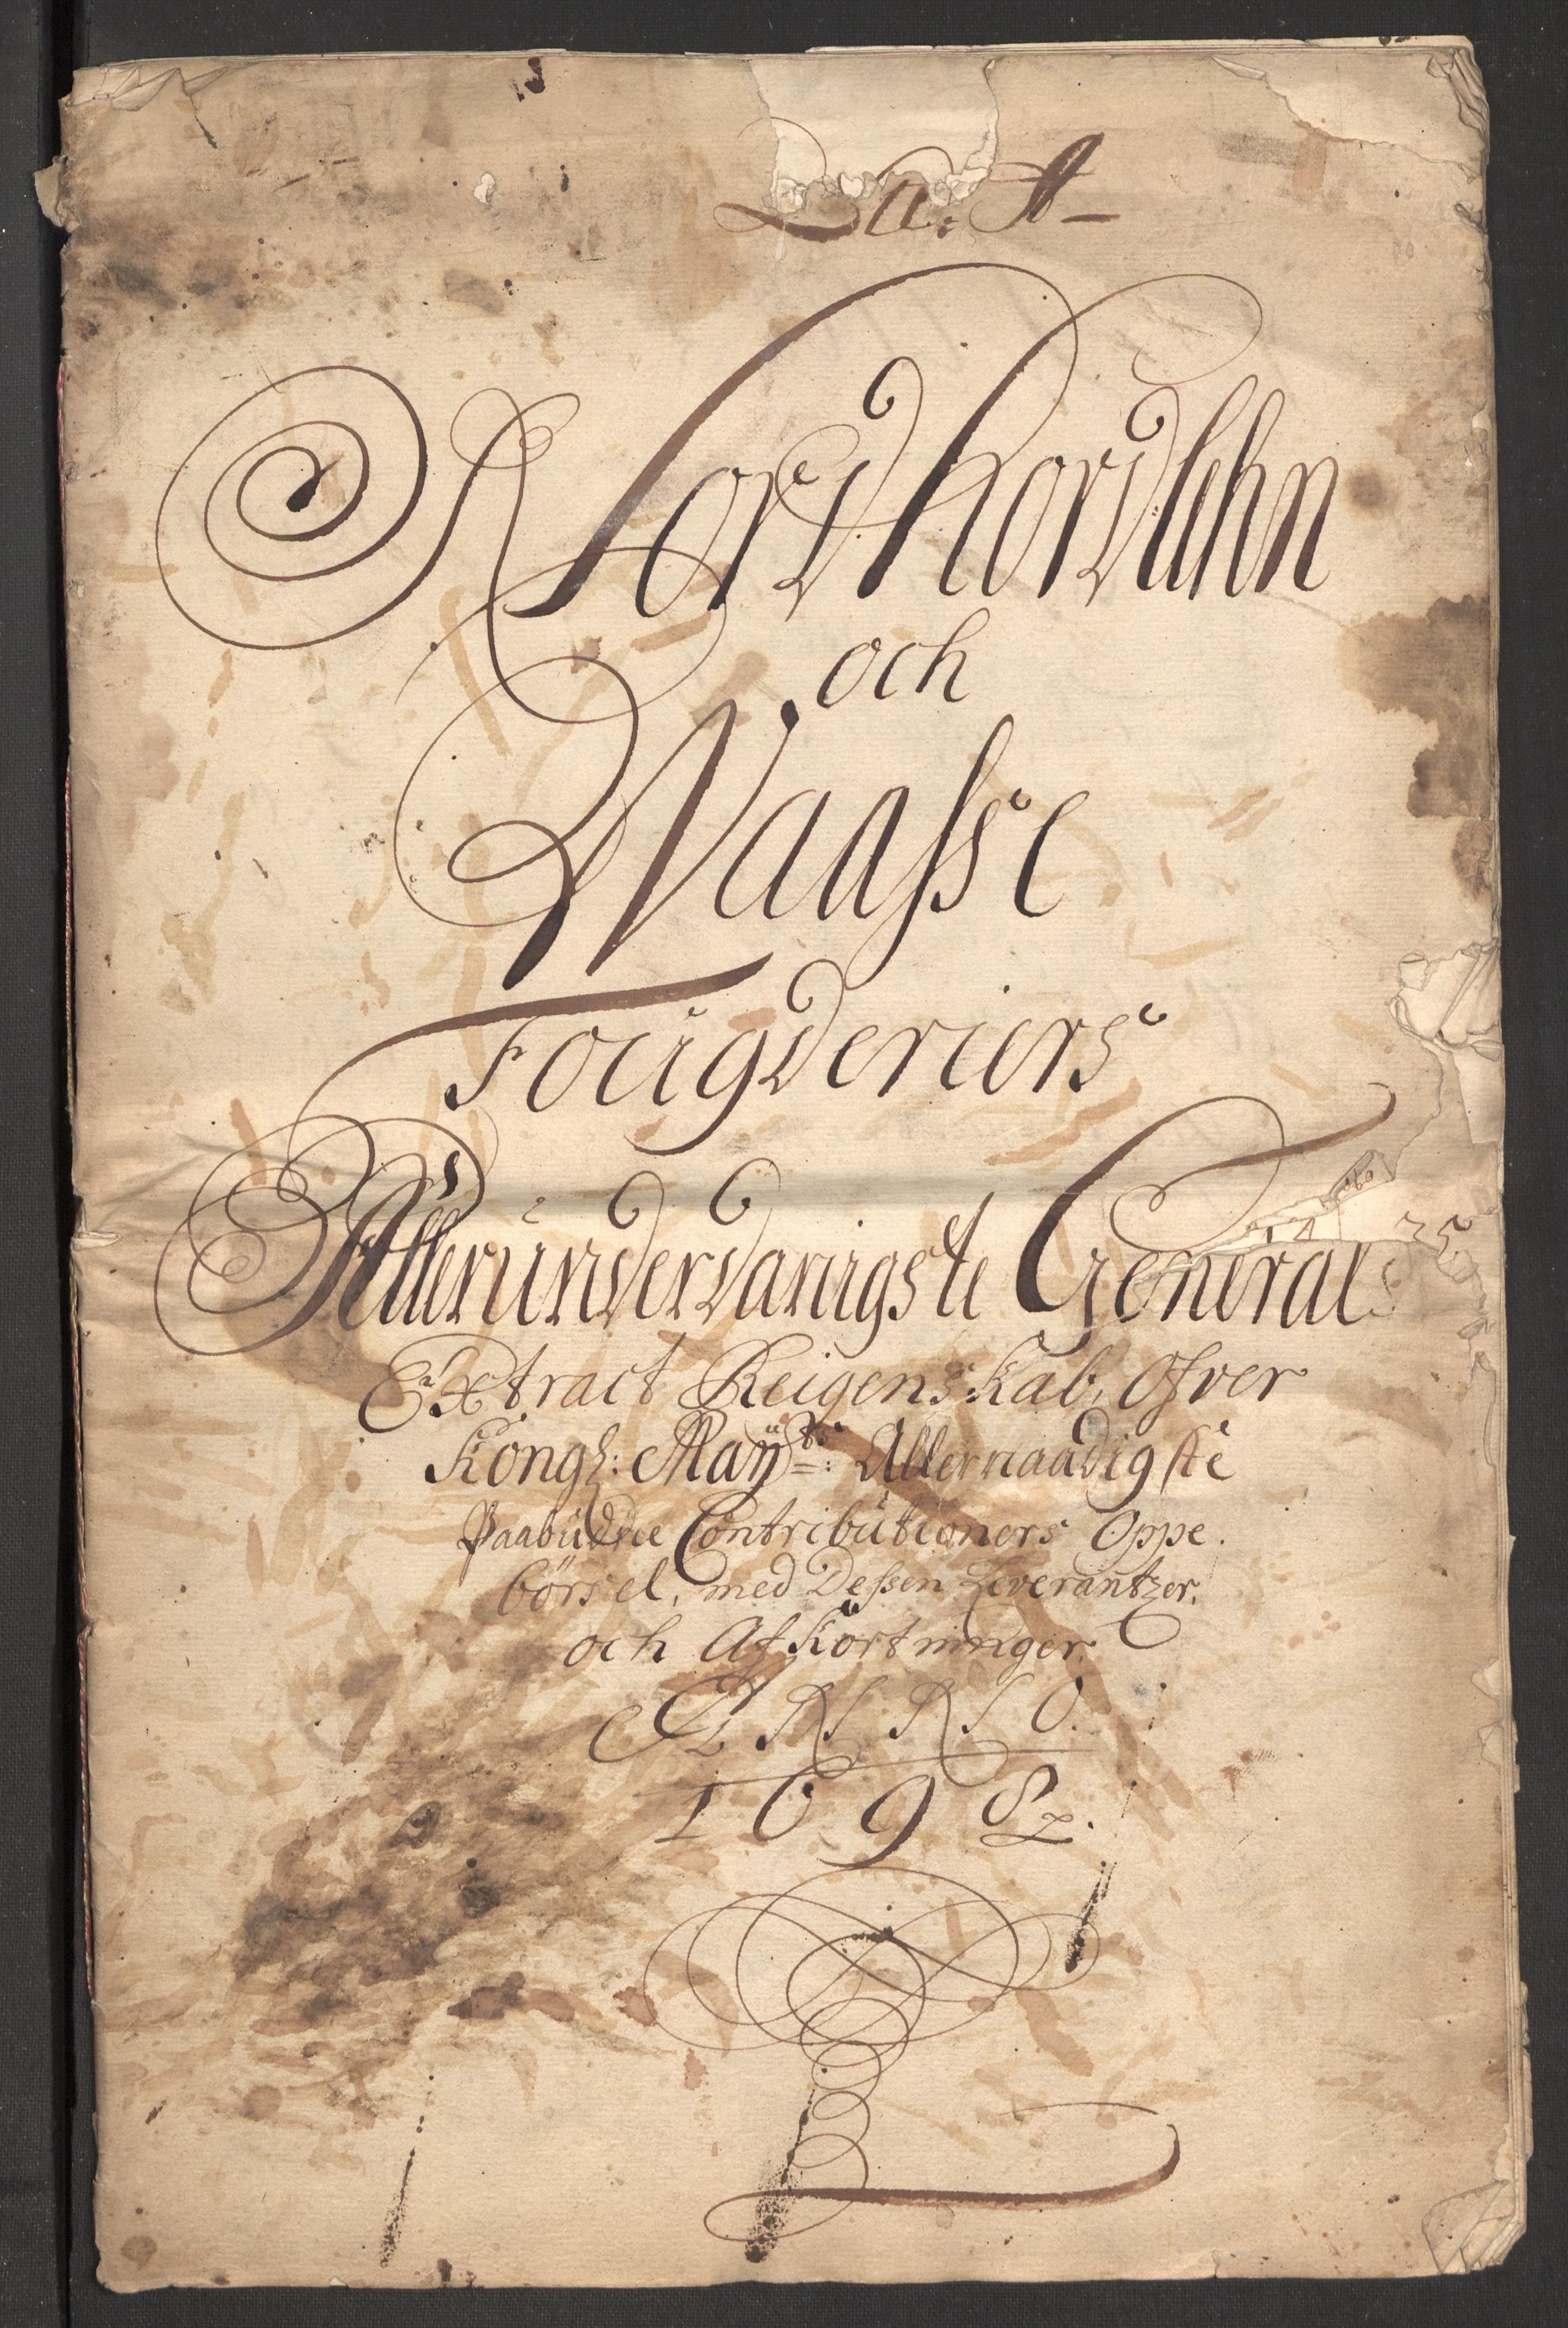 La. A
Nordhordlehn
och
Waasse
Fougderiers
Allerundervanigste General
Extract Reigenskab, Ofver
Kongl: Maÿts: Allernaadigste
Paabudne Contributioners Oppe
börsel, med Dessen Leverantzer,
och Afkortninger
ANNO.
1698